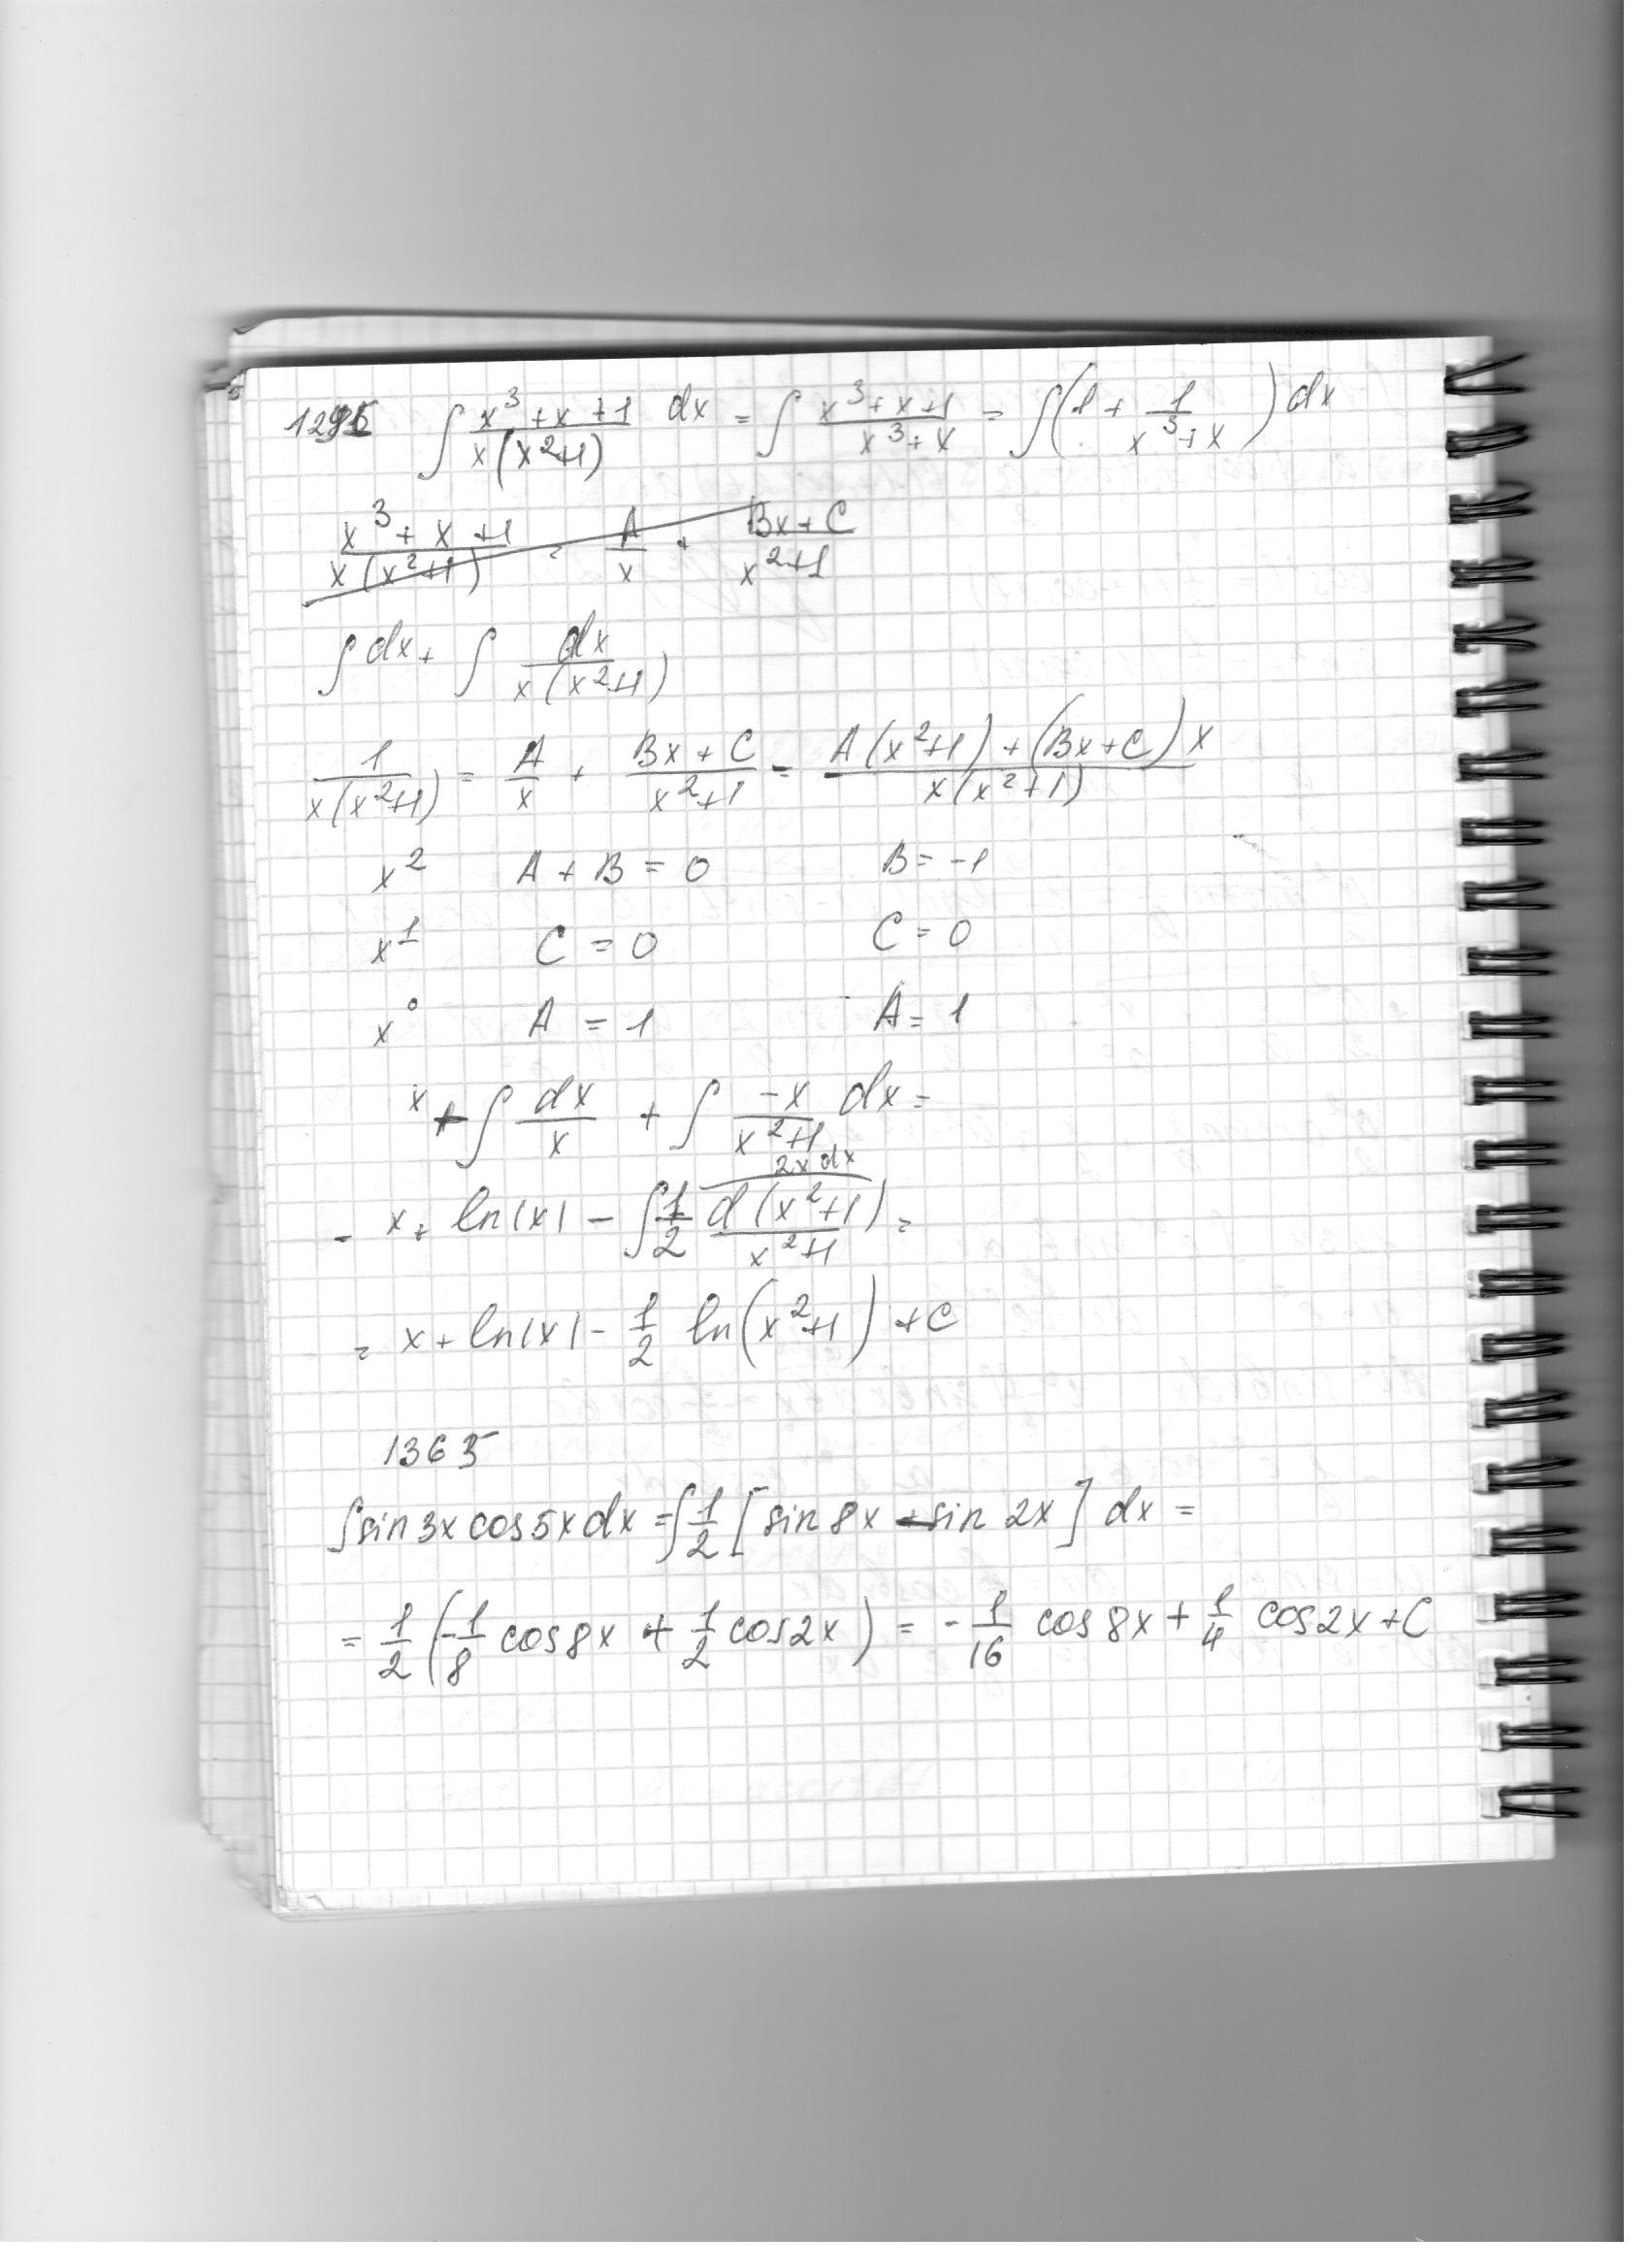 1295 ∫ (x³+x+1)/(x(x²+1)) dx = ∫ (x³+x+1)/(x³+x) = ∫(1 + 1/(x³+x)) dx
(x³+x+1)/(x(x²+1)) = A/x + (Bx+C)/(x²+1)
∫dx + ∫ dx/(x(x²+1))
1/(x(x²+1)) = A/x + (Bx+C)/(x²+1) = (A(x²+1)+(Bx+C)x)/(x(x²+1))
x² A+B=0 B=-1
x¹ C=0 C=0
x⁰ A=1 A=1
x + ∫ dx/x + ∫ -x/(x²+1) dx =
2x dx
= x + ln|x| - ∫ 1/2 d(x²+1)/(x²+1) =
= x + ln|x| - 1/2 ln(x²+1) + C
1365
∫sin3x cos5x dx = ∫ 1/2 [sin 8x - sin 2x] dx =
= 1/2 (-1/8 cos8x + 1/2 cos2x) = -1/16 cos8x + 1/4 cos2x + C